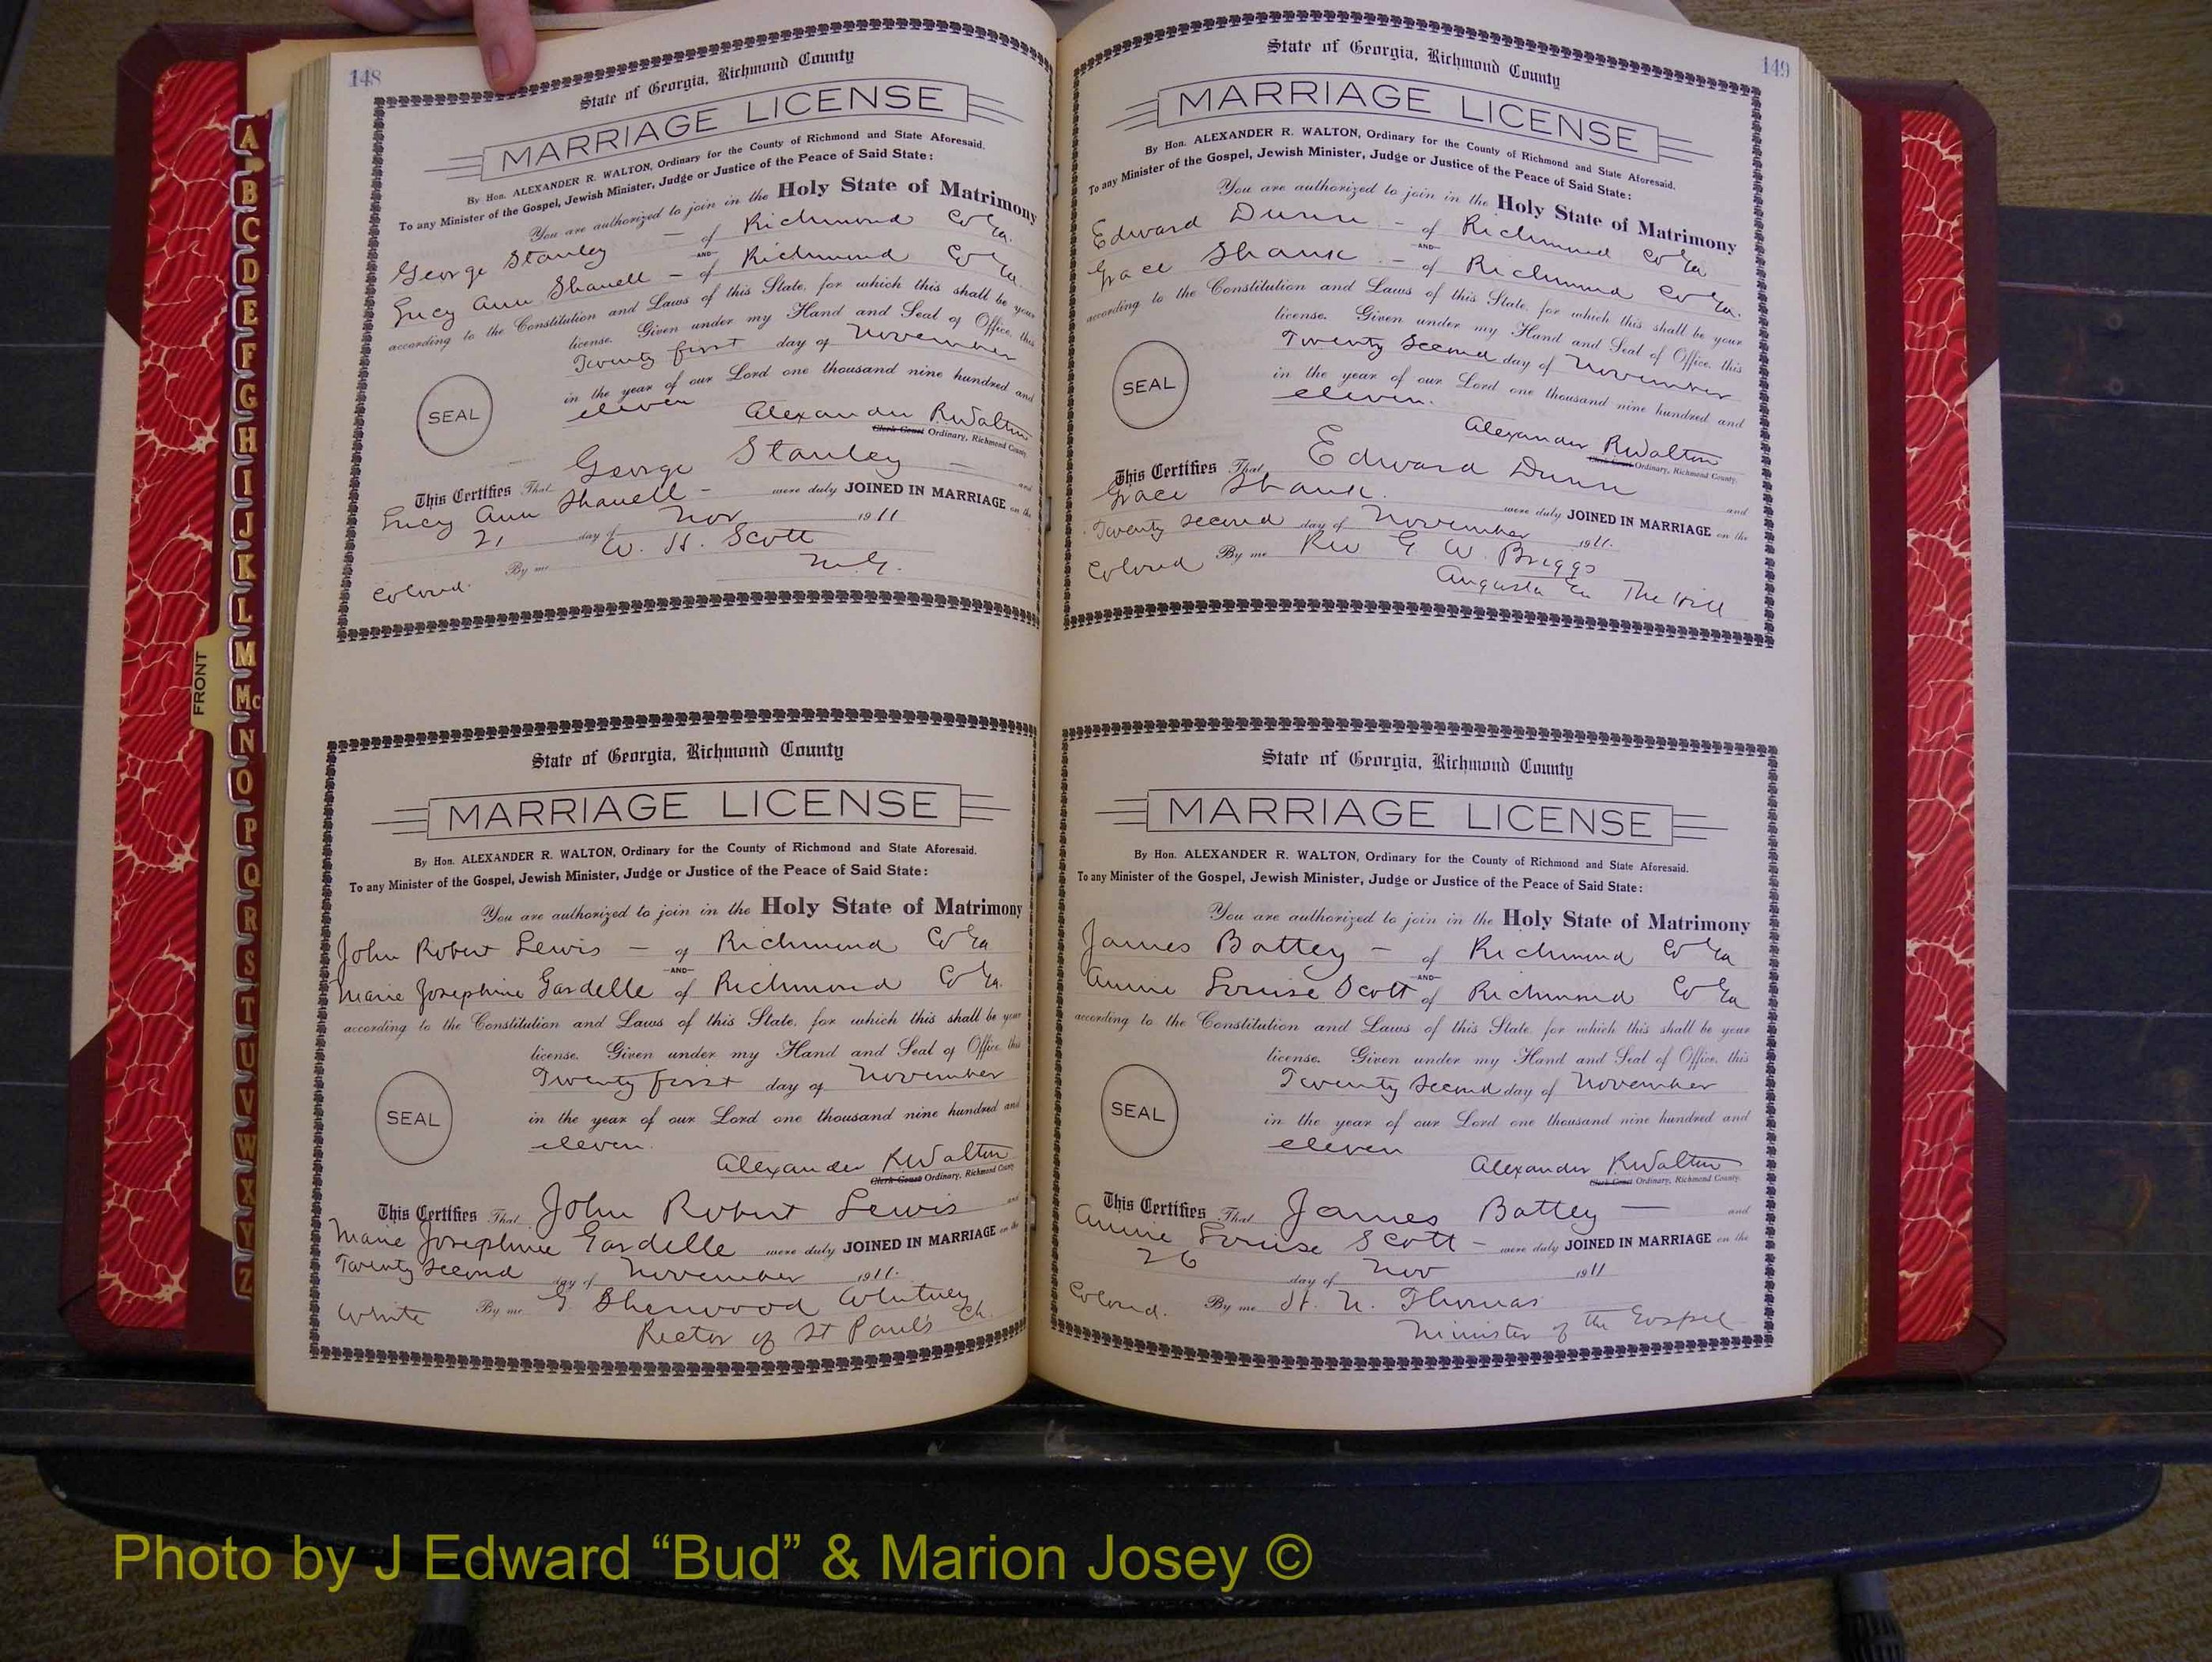 148
State of Georgia, Richmond County
MARRIAGE LICENSE
By Hon. ALEXANDER R. WALTON, Ordinary for the County of Richmond and State Aforesaid.
To any Minister of the Gospel, Jewish Minister, Judge or Justice of the Peace of Said State:
You are authorized to join in the Holy State of Matrimony
George Stanley — of Richmond Co Ga.
—AND—
Lucy Ann Shanell — of Richmond Co Ga.
according to the Constitution and Laws of this State, for which this shall be your
license. Given under my Hand and Seal of Office, this
Twenty first day of November
in the year of our Lord one thousand nine hundred and
SEAL
eleven
Alexander R Walton
Clerk Court Ordinary, Richmond County.
This Certifies That George Stanley — and
Lucy Ann Shanell — were duly JOINED IN MARRIAGE on the
21 day of Nov 1911
By me W. H. Scott
M.G.
Colored.
State of Georgia, Richmond County
MARRIAGE LICENSE
By Hon. ALEXANDER R. WALTON, Ordinary for the County of Richmond and State Aforesaid.
To any Minister of the Gospel, Jewish Minister, Judge or Justice of the Peace of Said State:
You are authorized to join in the Holy State of Matrimony
John Robert Lewis — of Richmond Co Ga
—AND—
Marie Josephine Gardelle of Richmond Co Ga.
according to the Constitution and Laws of this State, for which this shall be your
license. Given under my Hand and Seal of Office, this
Twenty first day of November
SEAL
in the year of our Lord one thousand nine hundred and
eleven.
Alexander R Walton
Clerk Court Ordinary, Richmond County
This Certifies That John Robert Lewis and
Marie Josephine Gardelle were duly JOINED IN MARRIAGE on the
Twenty Second day of November 1911.
White By me G. Sherwood Whitney
Rector of St Paul's Ch.
149
State of Georgia, Richmond County
MARRIAGE LICENSE
By Hon. ALEXANDER R. WALTON, Ordinary for the County of Richmond and State Aforesaid.
To any Minister of the Gospel, Jewish Minister, Judge or Justice of the Peace of Said State:
You are authorized to join in the Holy State of Matrimony
Edward Dunn — of Richmond Co Ga
—AND—
Grace Shank — of Richmond Co Ga.
according to the Constitution and Laws of this State, for which this shall be your
license. Given under my Hand and Seal of Office, this
Twenty Second day of November
SEAL
in the year of our Lord one thousand nine hundred and
eleven.
Alexander R Walton
Clerk Court Ordinary, Richmond County.
This Certifies That Edward Dunn and
Grace Shank. were duly JOINED IN MARRIAGE on the
Twenty second day of November 1911.
Colored By me Rev G W. Briggs
Augusta Ga The Hill
State of Georgia, Richmond County
MARRIAGE LICENSE
By Hon. ALEXANDER R. WALTON, Ordinary for the County of Richmond and State Aforesaid.
To any Minister of the Gospel, Jewish Minister, Judge or Justice of the Peace of Said State:
You are authorized to join in the Holy State of Matrimony
James Battey — of Richmond Co Ga
—AND—
Annie Louise Scott of Richmond Co Ga
according to the Constitution and Laws of this State, for which this shall be your
license. Given under my Hand and Seal of Office, this
Twenty Second day of November
SEAL
in the year of our Lord one thousand nine hundred and
eleven
Alexander R Walton
Clerk Court Ordinary, Richmond County.
This Certifies That James Battey — and
Annie Louise Scott — were duly JOINED IN MARRIAGE on the
26 day of Nov 1911
Colored. By me H. N. Thomas
Minister of the Gospel
FRONT
A
B
C
D
E
F
G
H
I
J
K
L
M
Mc
N
O
P
Q
R
S
T
U
V
W
X
Y
Z
Photo by J Edward “Bud” & Marion Josey ©